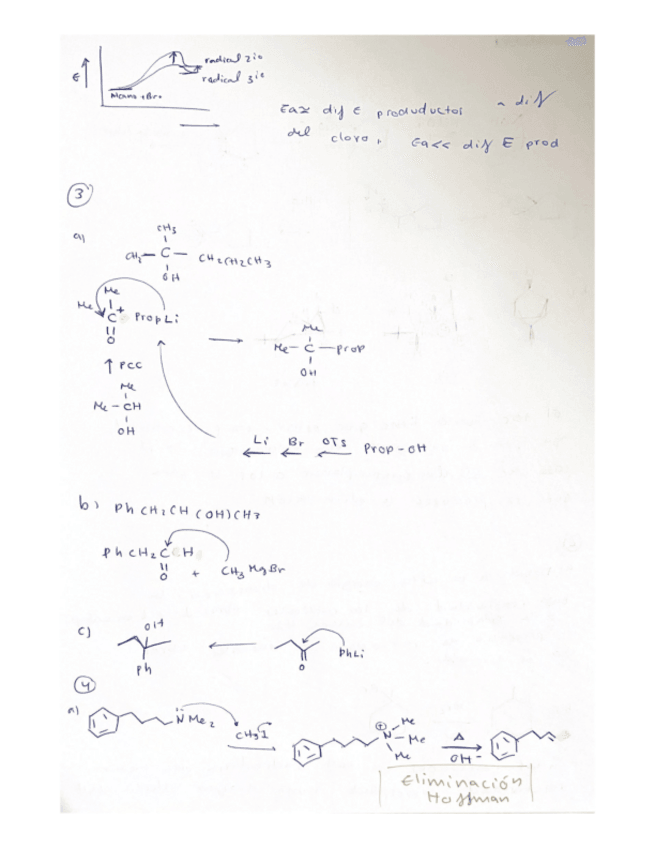 E
radical 2io
radical 3io
Mano + Br•
Ea≈ dif E produductos ~ dif
del cloro, Ea<< dif E prod
3
a)
CH3
CH3 — C — CH2CH2CH3
OH
Me
Me C+ Prop Li
O
Me
Me — C — Prop
OH
↑ PCC
Me
Me — CH
OH
Li Br OTs Prop - OH
b) Ph CH2 CH (OH) CH3
Ph CH2 C H
O + CH3 MgBr
c)
OH
Ph
O
PhLi
4
a)
N̈ Me2
CH3I
⊕ Me
N — Me
Me
Δ
OH-
Eliminación
Hoffman